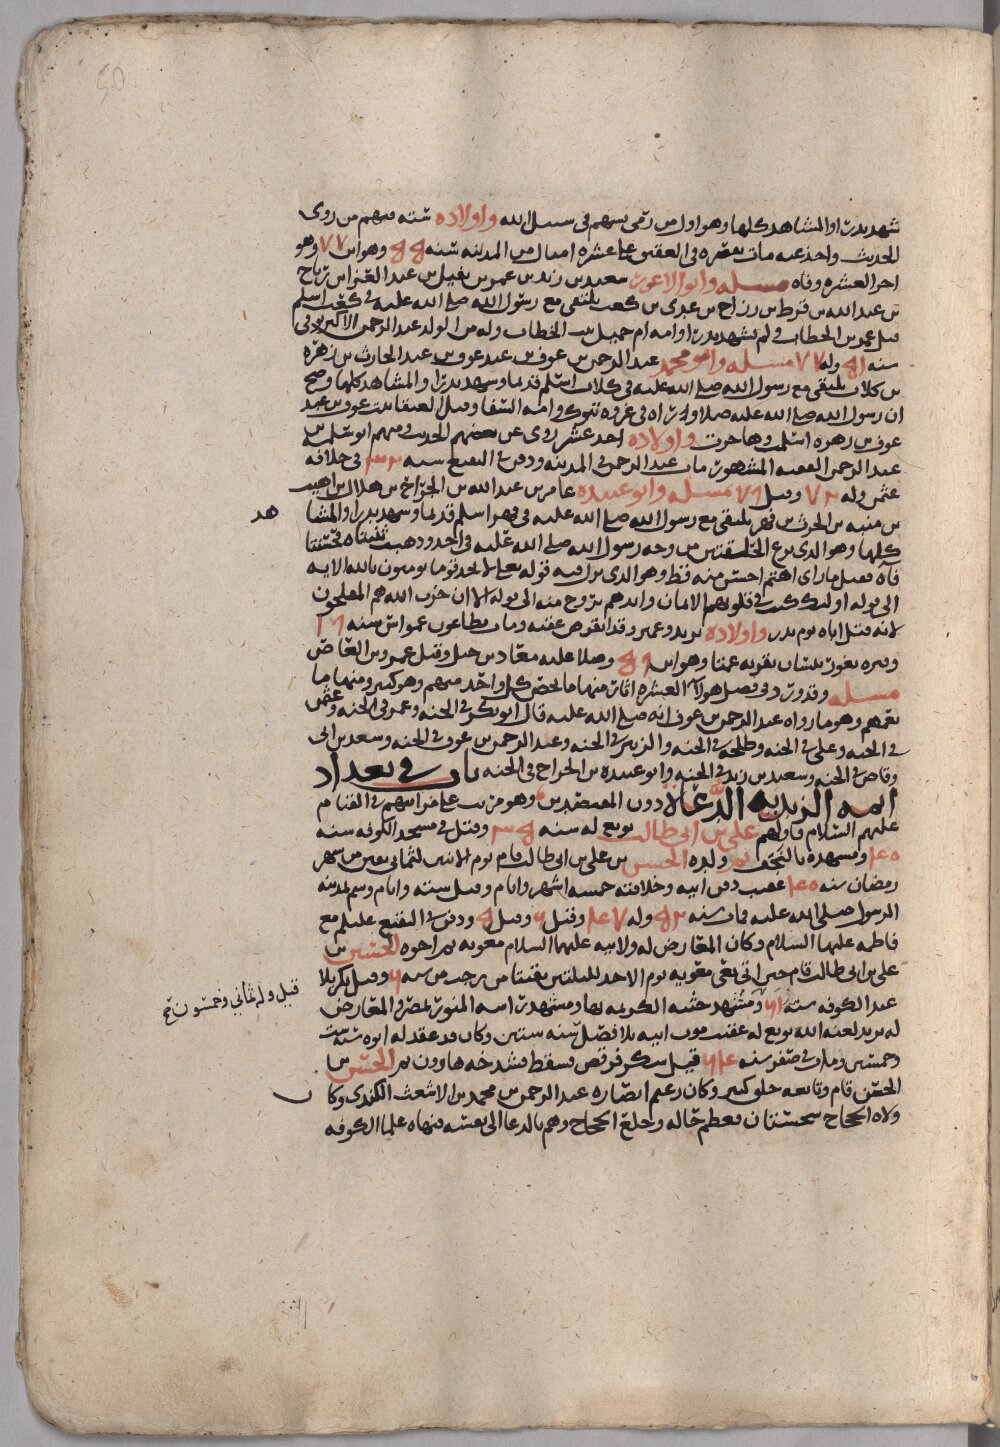 شهد بدرا والمشاهد كلها وهو اول من رمى بسهم في سبيل الله واولاده سته منهم من روى
الحديث واخذ عنه مات بقصره في العقيق على عشره اميال من المدينه سنه ٥٥ وهو ابن ٧٧ وهو
اخر العشره وفاه مسله وابو الاعور سعيد بن زيد بن عمرو بن نفيل بن عبد العزا بن رياح
بن عبد الله بن قرط بن رزاح بن عدي بن كعب يلتقي مع رسول الله صلى الله عليه في كعب اسلم
قبل عمر بن الخطاب ولم يشهد بدرا وامه ام جميل بنت الخطاب وله من الولد عبد الرحمن الاكبر توفي
سنه ٥١ وله ٧٧ مسله وابو محمد عبد الرحمن بن عوف بن عبد عوف بن عبد الحارث بن زهره
بن كلاب يلتقي مع رسول الله صلى الله عليه في كلاب اسلم قديما وشهد بدرا والمشاهد كلها وصح
ان رسول الله صلى الله عليه صلا وراه في غزوه تبوك وامه الشفا وقيل العنقا بنت عوف بن عبد
عوف بن زهره اسلمت وهاجرت واولاده احد عشر روى عن بعضهم الحديث ومنهم ابو سلمه بن
عبد الرحمن الفقيه المشهور مات عبد الرحمن في المدينه ودفن في البقيع سنه ٣٢ في خلافه
عثمن وله ٧٢ وقيل ٧٦ مسله وابو عبيده عامر بن عبد الله بن الجراح بن هلال بن اهيب
بن منبه بن الحرث بن فهر يلتقي مع رسول الله صلى الله عليه في فهر اسلم قديما وشهد بدرا والمشا
هد
كلها وهو الذي نزع الحلقتين من وجه رسول الله صلى الله عليه في احد وذهبت ثنيتاه فحسنتا
فاه فقيل ما راى اهتم احسن منه قط وهو الذي نزل فيه قوله تعلى لا تجد قوما يومنون بالله الايه
الى قوله اوليك كتب في قلوبهم الايمان وايدهم بروح منه الى قوله الا ان حزب الله هم المفلحون
لانه قتل اباه يوم بدر واولاده يزيد وعمير وقد انقرض عقبه ومات بطاعون عمواس سنه ١٨
وقبره بغور بيسان بقريه عمتا وهو ابن ٥٨ وصلا عليه معاذ بن جبل وقيل عمرو بن العاص
مسله وقد ورد في فضل هولا العشره اثار منها ما يخص كل واحد منهم وهو كثير ومنها ما
يعمهم وهو ما رواه عبد الرحمن بن عوف انه صلى الله عليه قال ابو بكر في الجنه وعمر في الجنه وعثمن
في الجنه وعلي في الجنه وطلحه في الجنه والزبير في الجنه وعبد الرحمن بن عوف في الجنه وسعد بن ابي
وقاص في الجنه وسعيد بن زيد في الجنه وابو عبيده بن الجراح في الجنه باب في تعداد
ايمه الزيديه الدعاه دون المقتصدين وهو مرتب على مراتبهم في القيام
عليهم السلام فاولهم علي بن ابي طالب بويع له سنه ٣٥ وقتل في مسجد الكوفه سنه
٤٠ ومشهده بالنجف ثم ولده الحسن بن علي بن ابي طالب قام يوم الاثنين لثماني بقين من شهر
رمضان سنه ٤٠ عقيب دفن ابيه وخلافته خمسه اشهر وايام وقيل سته وايام وسم بمدينه
الرسول صلى الله عليه فمات سنه ٥٢ وله ٤٧ وقيل ٦ وقيل ٥ ودفن في البقيع عليلم مع
فاطمه عليها السلام وكان المعارض له ولابيه عليهما السلام معويه ثم اخوه الحسين بن
علي بن ابي طالب قام حين اتى نعي معويه يوم الاحد لليلتين بقيتا من رجب من سنه ٦٠ وقتل بكربلا
عند الكوفه سنه ٦١ ومشهد جثته الكريمه بها ومشهد راسه المنور بمصر والمعارض
قيل وله ثماني وخمسون تمت
له يزيد لعنه الله بويع له عقيب موت ابيه بلا فصل سنه ستين وكان قد عقد له ابوه سنه ست
وخمسين ومات في صفر سنه ٦٤ قيل سكر فرقص فسقط فشدخه هاوون ثم الحسن بن
الحسن قام وتابعه خلق كثير وكان زعيم انصاره عبد الرحمن بن محمد بن الاشعث الكندي وكا
ن
ولاه الحجاج سجستان فعظم حاله وخلع الحجاج وهم بالدعا الى نفسه فنهاه علما الكوفه